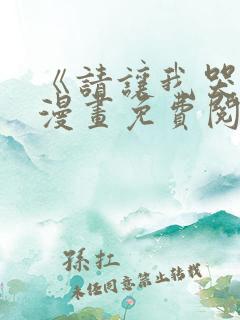 《請讓我哭
漫畫免費閱
孫扛
未經同意禁止轉載